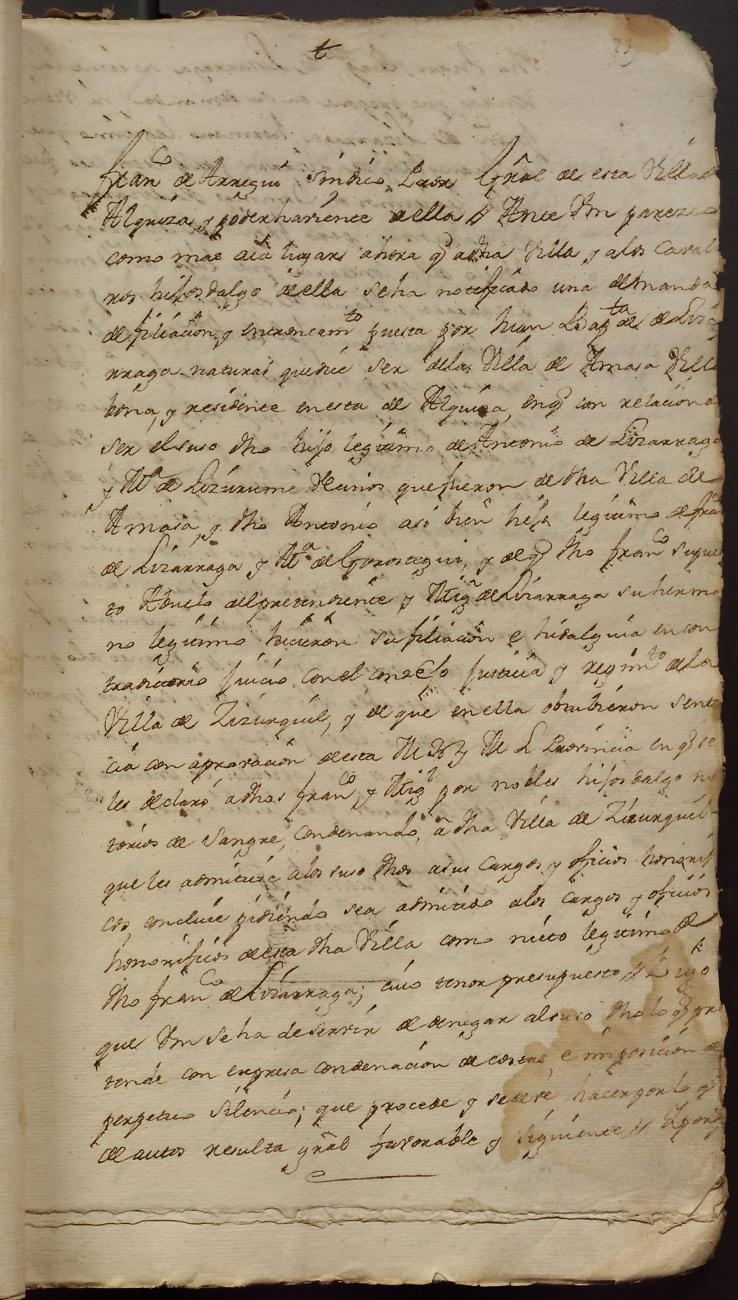 t
23
Fran.co de Arregui Sindico Pror Gral de esta Villa de
Alquiza, y poderhaviente de ella Ante Vm parezco
como mas aia lugar ahora q.e a dha Villa y a los Cavall
ros hijosdalgo de ella se ha notificado una demanda
de filiacion, y entroncam.to puesta por Juan Bap.ta de Liza
rraga natural que dice ser de la Villa de Amasa Villa
bona, y residente en esta de Alquiza, en q.e con relacion de
ser el suso dho hijo legitimo de Antonio de Lizarraga
y M.a de Lizurume Vecinos que fueron de dha Villa de
Amasa, y dho Antonio asi bien hijo legitimo de Fran
de Lizarraga y M.a de Gorostegui, y de q.e dho Fran.co supues
to Abuelo del pretendiente y Mig.l de Lizarraga su herma
no legitimo hicieron su filiacion e hidalguia en con
tradictorio juicio con el conzejo justicia y regim.to de la
Villa de Zizurquil, y de que en ella obtubieron senten
cia con aprovacion de esta M. N. y M. L. Provincia en q.e se
les declaró a dhos Fran.co y Mig.l por nobles hijosdalgo no
torios de Sangre, condenando, a dha Villa de Zizurquil
que les admitiese a los suso dhos a sus cargos y oficios honorifi
cos concluie pidiendo sea admitido a los cargos y oficios
honorificos de esta dha Villa como nieto legitimo de
dho Fran.co de Lizarraga; cuio tenor presupuesto Digo
que Vm se ha de servir de denegar al suso dho lo q.e pre
tende con expresa condenacion de costas, e imposicion de
perpetuo silencio; que procede y se deve hacer por lo q.e
de autos resulta gral favorable y siguiente Lo porq.e